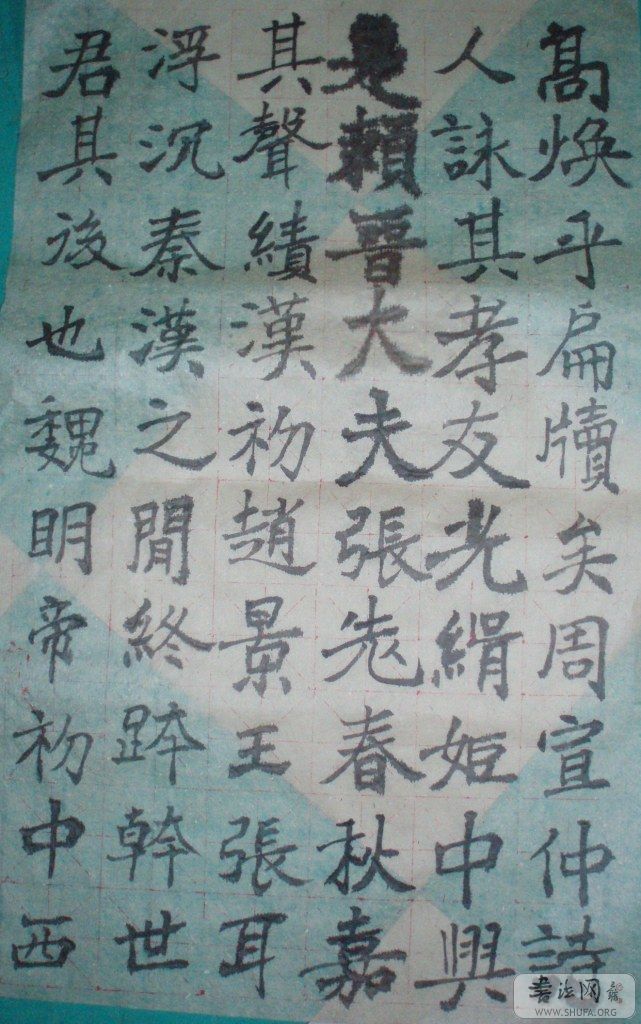 髙焕乎扁牘矣周宣仲詩
人詠其孝友光緝姬中興
是賴晉大夫張老春秋嘉
其聲績漢初趙景王張耳
浮沉秦漢之閒終跨幹世
君其後也魏明帝初中西
書法网
WWW.SHUFA.ORG